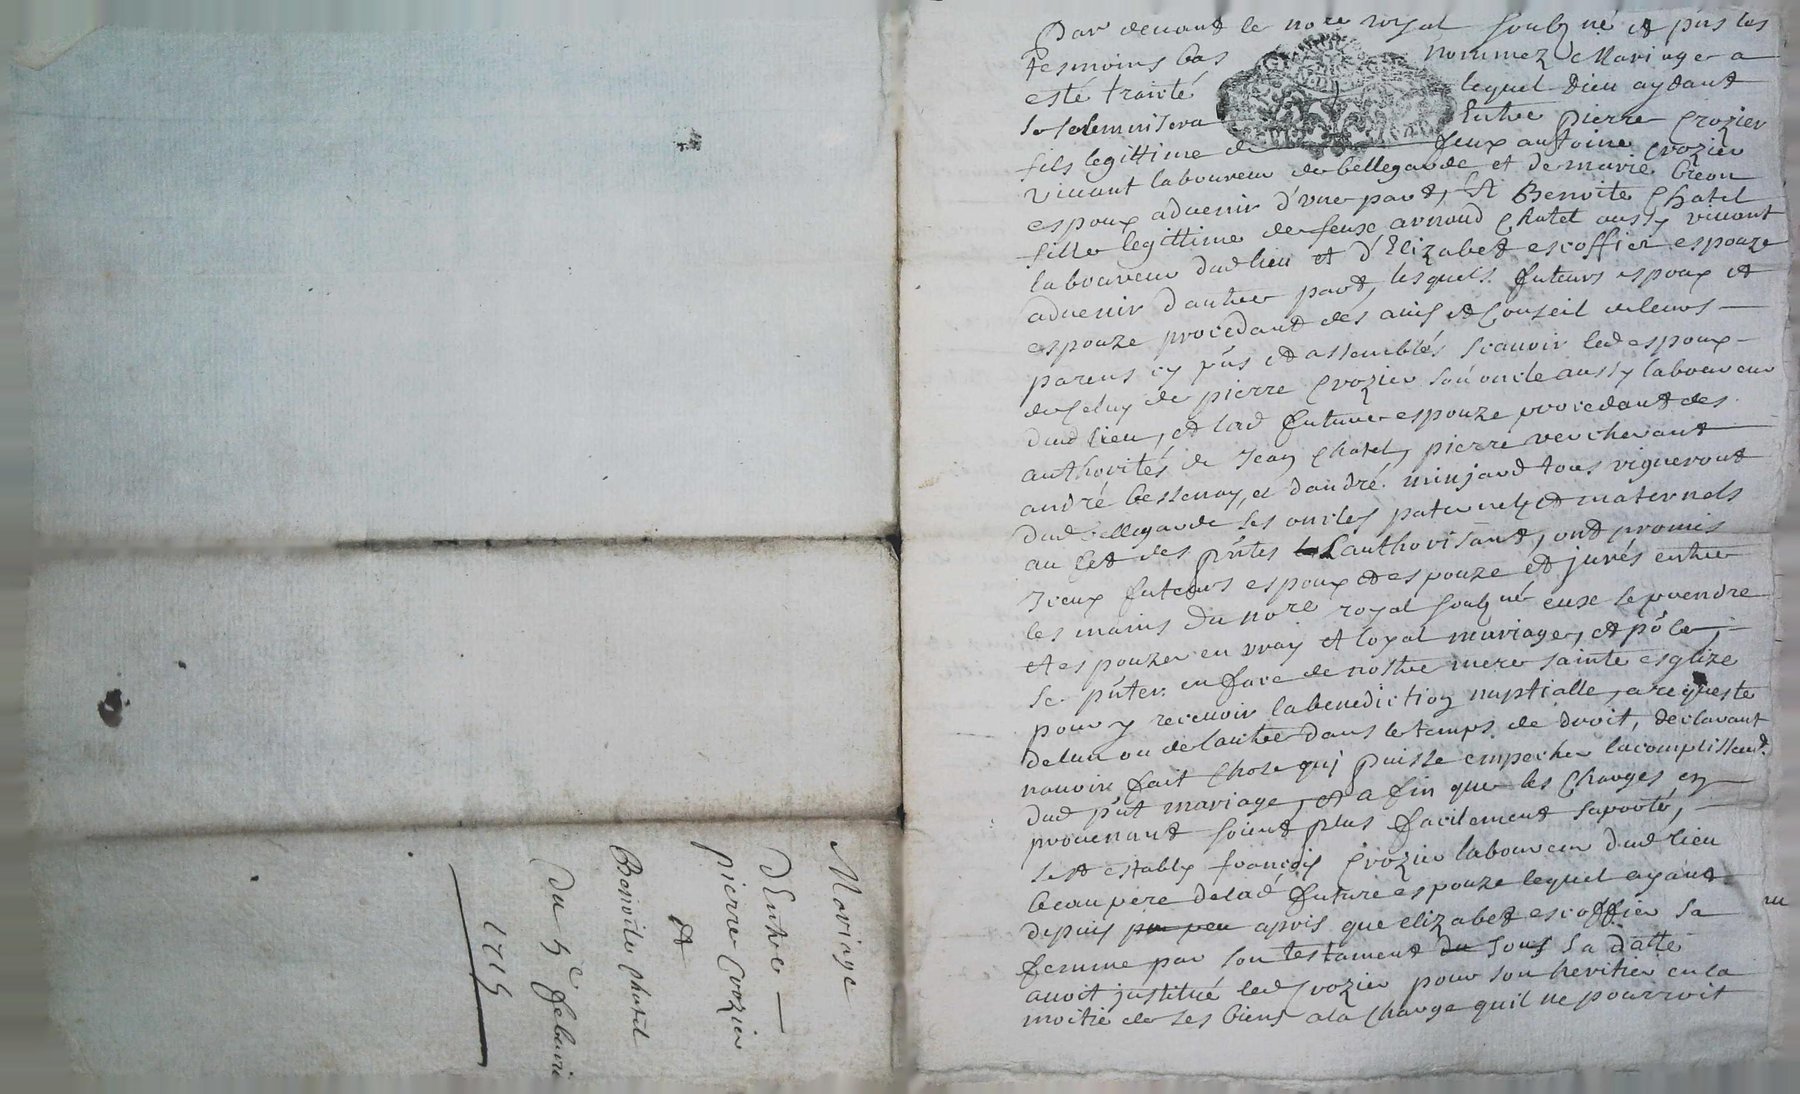 Mariage
D'Entre
pierre Crozier
et
Benoite Chatel
Du 5e febvrie
1715
Par devant le nore royal soubzné et pns les
tesmoins bas nommez Mariage a
esté traitté lequel Dieu aydant
se solemnisera Entre pierre Crozier
fils legittime de feux antoine Crozier
vivant laboureur de bellegarde et de marie breon
espoux advenir d'une part, Et Benoite Chatel
fille legittime de feux arnoud Chatel aussy vivant
laboureur dud lieu et d'Elizabet escoffier espouze
advenir dautre part, lesquels futeurs espoux et
espouze procedant des avis et Conseil de leurs
parens cy pns et assemblés scavoir led espoux
de Celuy de pierre Crozier son oncle aussy laboureur
dud lieu, et lad future espouze procedant des
authorités de Jean Chatel, pierre vercherant
andré bessenay, et d'andré minjard tous vigneront
dud bellegarde ses oncles paternels et maternels
au Cet des pntes Lauthorisant, ont promis
Iceux futeurs espoux et espouze et jurés entre
les mains du nore royal soubzné euxe se prendre
et espouzer en vray et loyal mariage, et pôler,
se pnter en face de nostre mere sainte esglize
pour y recevoir la benediction nuptialle, a requeste
de lun ou de lautre dans le temps de droit, declarant
navoir fait Chose quj puisse empecher lacomplissemt
dud pnt mariage, et a fin que les Charges en
provenant soient plus facilement suporté,
sest estably françois Crozier laboureur dud lieu
beau pere de lad future espouze lequel ayant
depuis peu apris que elizabet escoffier sa
femme par son testament sous sa datte
avoit justitué led Crozier pour son heritier en la
moitié de ses biens a la Charge quil ne pourroit